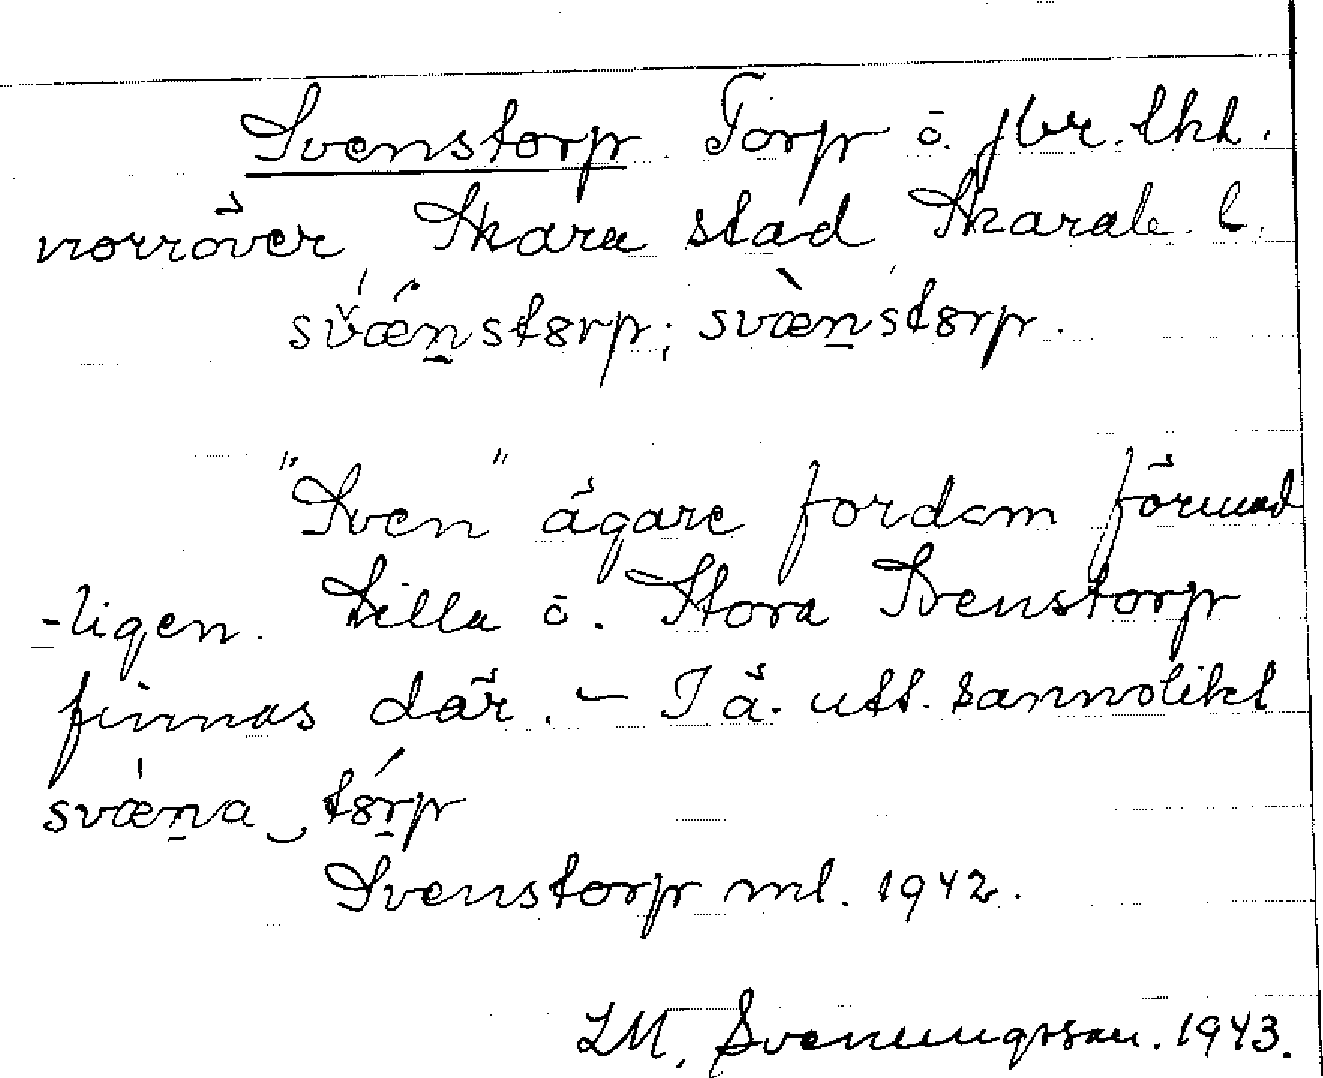 Svenstorp. Torp o. jbr. lhl.
norröver Skara stad Skarab. l.
svǽn̲stɔrp; svæ̀n̲stɔrp.
"Sven" ägare fordom förmod
-ligen. Lilla o. Stora Svenstorp
finnas där. – I ä. utt. sannolikt
svæn̲a‿tɔ́r̲p
Svenstorp ml. 1942.
LM. Svenungsson. 1943.